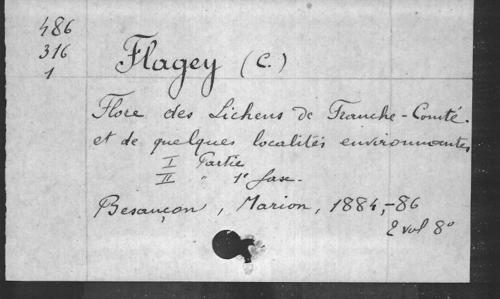 486
316
1
Flagey (C.)
Flore des Lichens de Franche-Comté.
et de quelques localités environnantes
I Partie
II " 1e fasc.
Besançon, Marion, 1884,-86
2 vol 8°